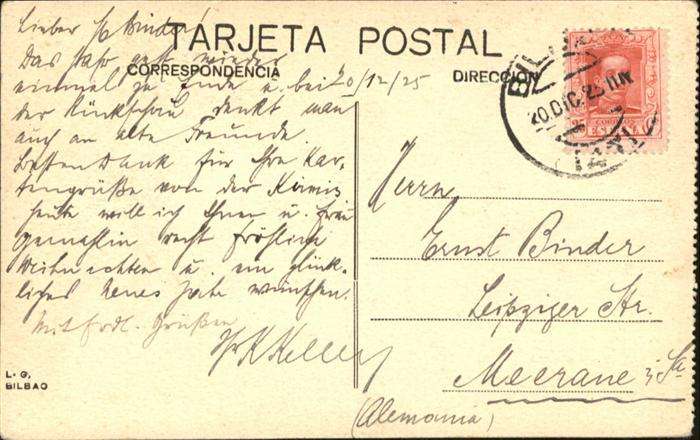 TARJETA POSTAL
CORRESPONDENCIA
DIRECCION
Lieber Hr Binder!
Das Jahr geht wieder
einmal zu Ende u. bei
20/12/25
der Rückschau denkt man
auch an alte Freunde.
Besten Dank für Ihre Kar-
tengrüße von der Kirmis
heute will ich Ihnen u. Frau
Gemahlin recht fröhliche
Weihnachten u. ein glück-
liches neues Jahr wünschen.
Mit frdl. Grüßen
Kelley
L. G.
BILBAO
BILBAO
20.DIC.25
CORREOS
ESPAÑA
Herrn
Ernst Binder
Leipziger Str.
Meerane i/Sa
(Alemania)